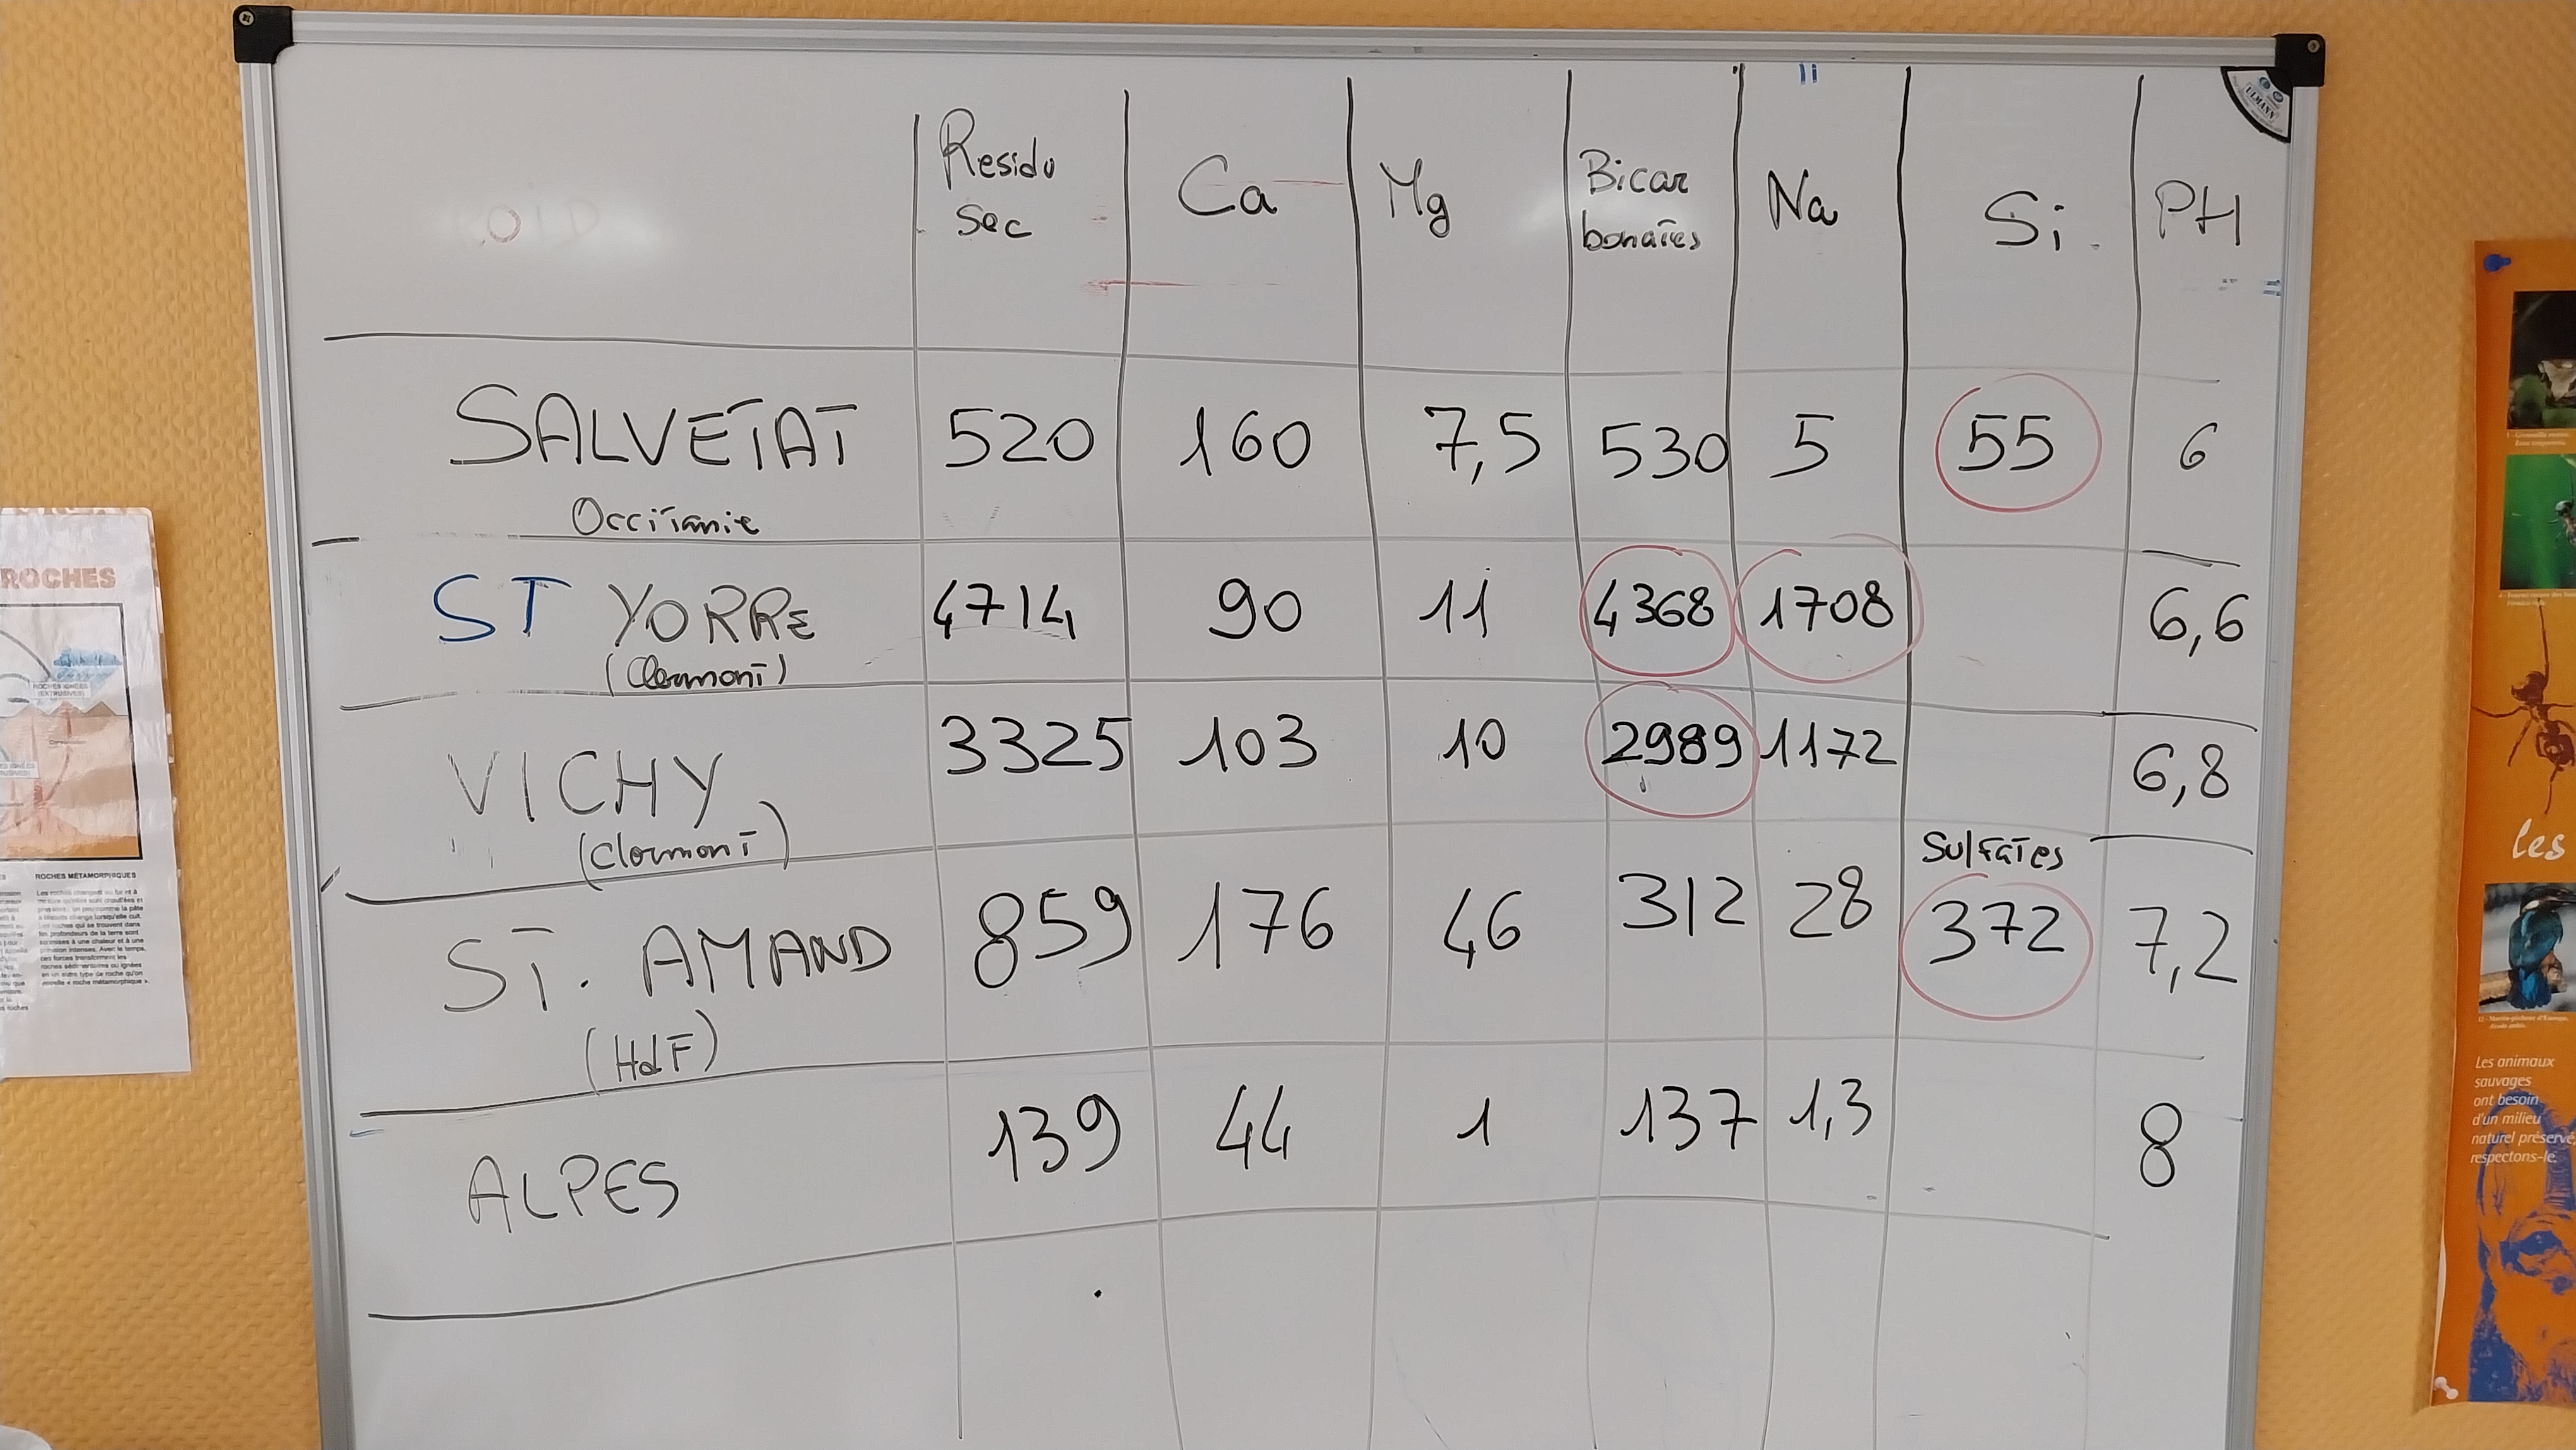 Residu
sec
Ca
Mg
Bicar
bonates
Na
Si.
PH
SALVETAT 520 160 7,5 530 5 55 6
Occitanie
ST YORRE 4714 90 11 4368 1708 6,6
(Clermont)
VICHY 3325 103 10 2989 1172 6,8
(Clermont)
Sulfates
ST. AMAND 859 176 46 312 28 372 7,2
(HdF)
ALPES 139 44 1 137 1,3 8
ULMANN
ROCHES
ROCHES MÉTAMORPHIQUES
les
Les animaux
sauvages
ont besoin
d'un milieu
naturel préservé,
respectons-le.